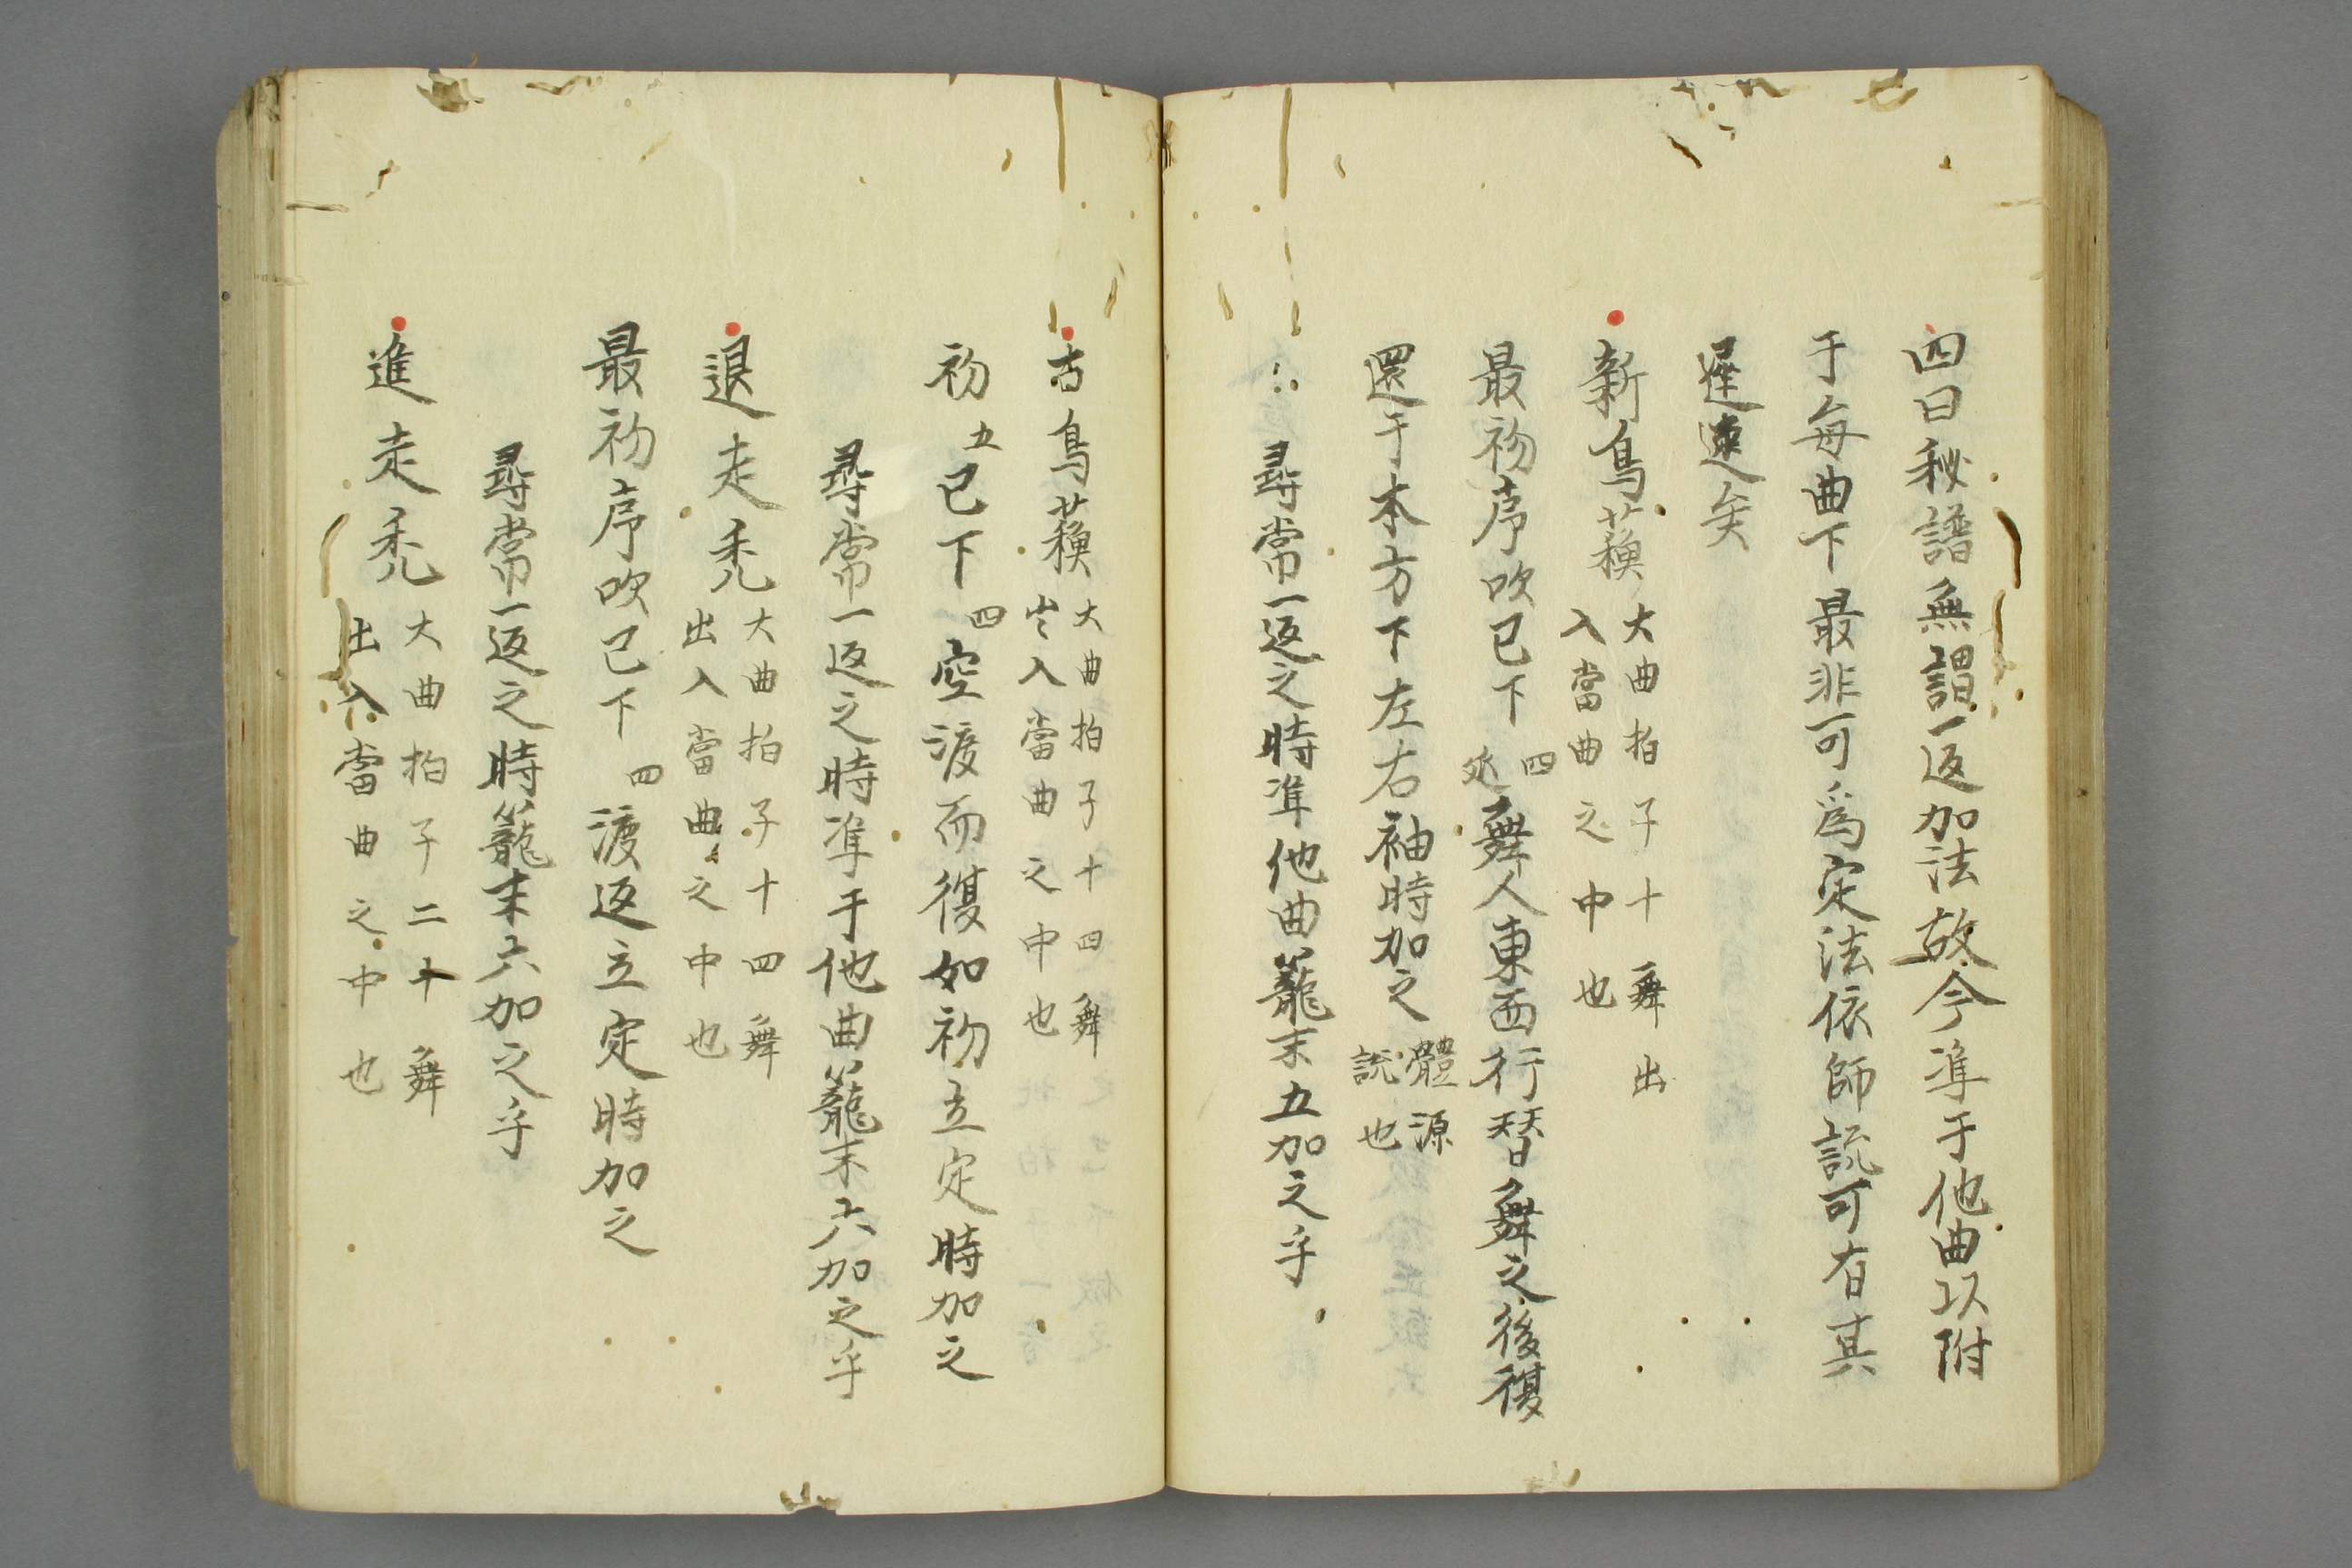 四曰秘譜無謂一返加法故今準于他曲以附
于每曲下最非可為定法依師説可有其
遲速矣
新鳥蘓大曲拍子十舞出
入當曲之中也
最初序吹已下四
处舞人東西行替舞之後復
還于本方下左右袖時加之體源
説也
尋常一返之時準他曲籠末五加之乎
古鳥蘓大曲拍子十四舞
出入當曲之中也
初五已下四空渡而復如初立定時加之
尋常一返之時準于他曲籠末六加之乎
退走禿大曲拍子十四舞
出入當曲之中也
最初序吹已下四渡返立定時加之
尋常一返之時籠末六加之乎
進走禿大曲拍子二十舞
出入當曲之中也